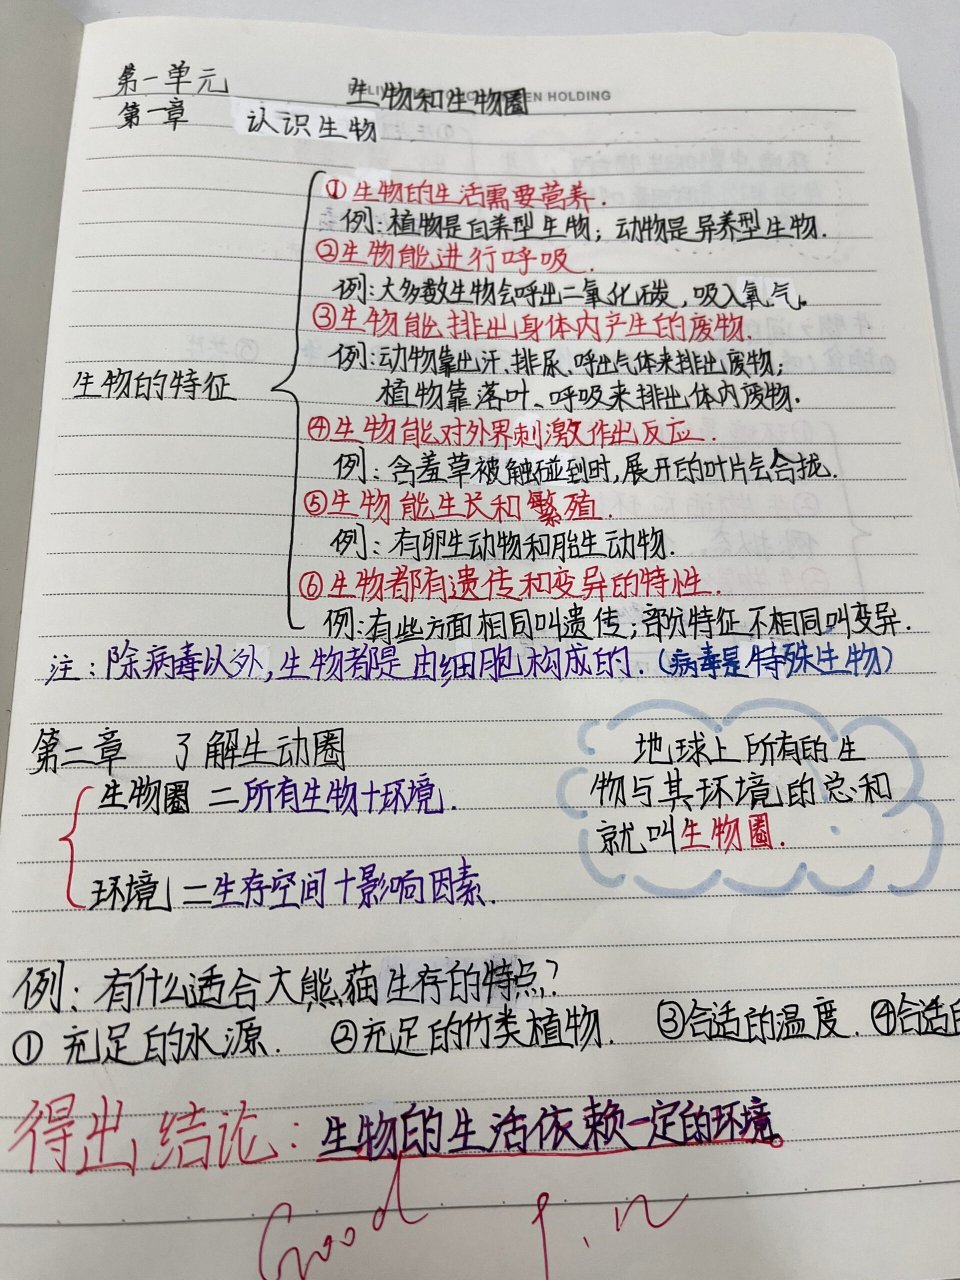 第一单元 生物和生物圈
HOLDING
第一章 认识生物
①生物的生活需要营养.
例:植物是自养型生物;动物是异养型生物.
②生物能进行呼吸.
例:大多数生物会呼出二氧化碳,吸入氧气。
③生物能排出身体内产生的废物.
例:动物靠出汗、排尿、呼出气体来排出废物;
生物的特征
植物靠落叶、呼吸来排出体内废物.
④生物能对外界刺激作出反应.
例:含羞草被触碰到时,展开的叶片会合拢.
⑤生物能生长和繁殖.
例:有卵生动物和胎生动物.
⑥生物都有遗传和变异的特性.
例:有些方面相同叫遗传;部分特征不相同叫变异.
注:除病毒以外,生物都是由细胞构成的.(病毒是特殊生物)
第二章 了解生动圈
生物圈=所有生物+环境.
环境=生存空间+影响因素.
地球上所有的生
物与其环境的总和
就叫生物圈.
例:有什么适合大熊猫生存的特点?
①充足的水源. ②充足的竹类植物. ③合适的温度. ④合适的
得出结论:生物的生活依赖一定的环境。
Good